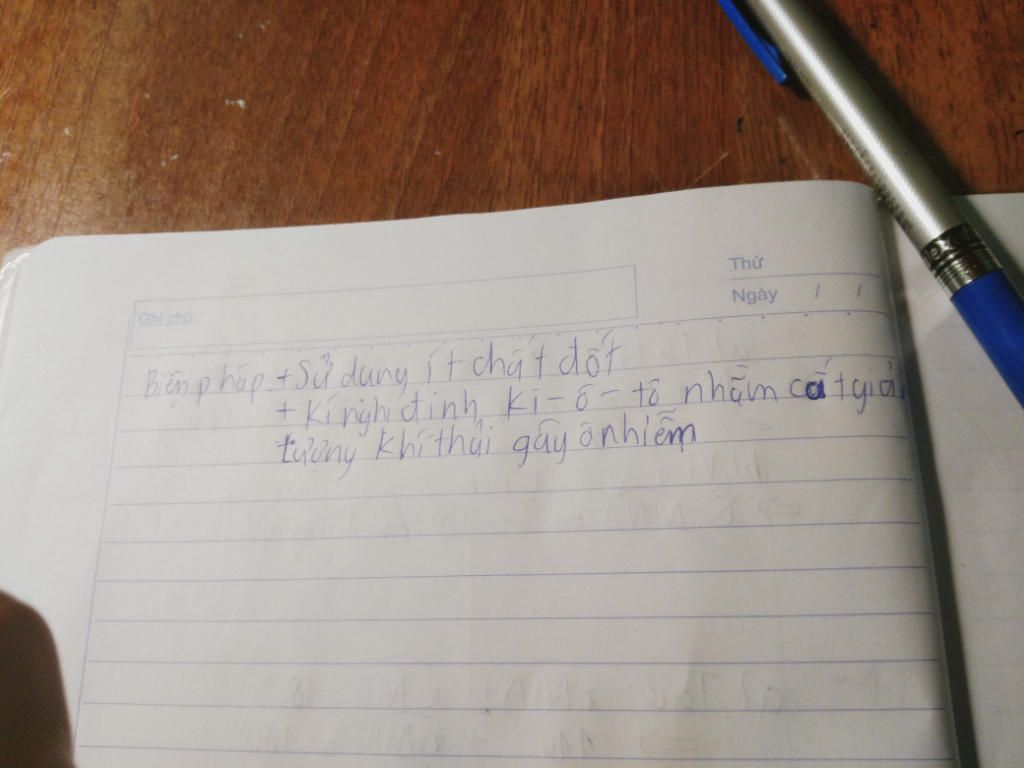 Thứ
Ngày / /
Ghi chú:
Biện pháp: + Sử dụng ít chất đốt
+ Kí nghị định Ki-ô-tô nhằm cắt giả
tượng khí thải gây ô nhiễm